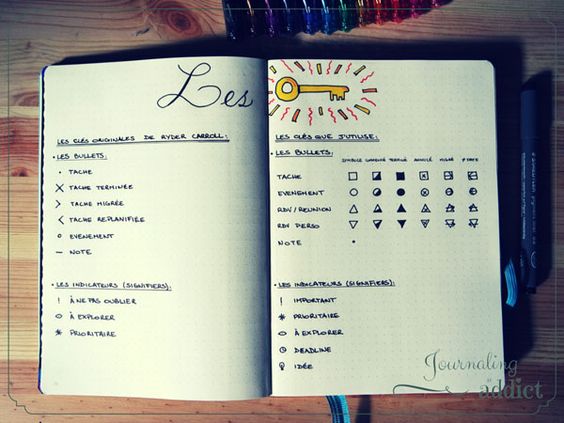 Les
LES CLÉS ORIGINALES DE RYDER CARROLL :
• LES BULLETS :
• TACHE
X TACHE TERMINÉE
> TACHE MIGRÉE
< TACHE REPLANIFIÉE
o EVENEMENT
– NOTE
• LES INDICATEURS (SIGNIFIERS) :
! À NE PAS OUBLIER
À EXPLORER
* PRIORITAIRE
LES CLÉS QUE J'UTILISE :
• LES BULLETS :
SYMBOLE COMMENCÉ TERMINÉ ANNULÉ MIGRÉ
TACHE
EVENEMENT
RDV / REUNION
RDV PERSO
NOTE •
• LES INDICATEURS (SIGNIFIERS) :
! IMPORTANT
* PRIORITAIRE
À EXPLORER
DEADLINE
IDÉE
Journaling
addict